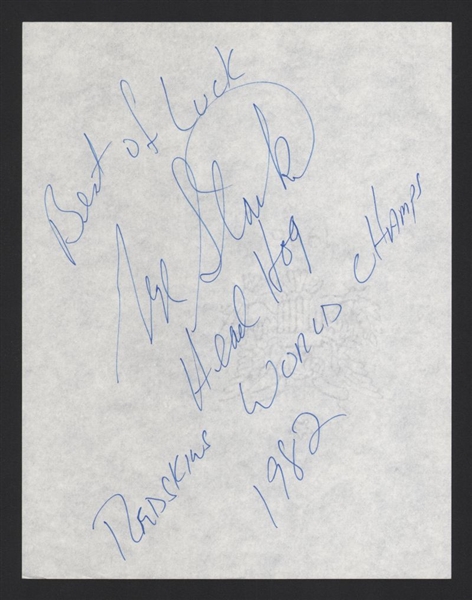 Best of Luck
Head Hog
REDSKINS WORLD CHAMPS
1982